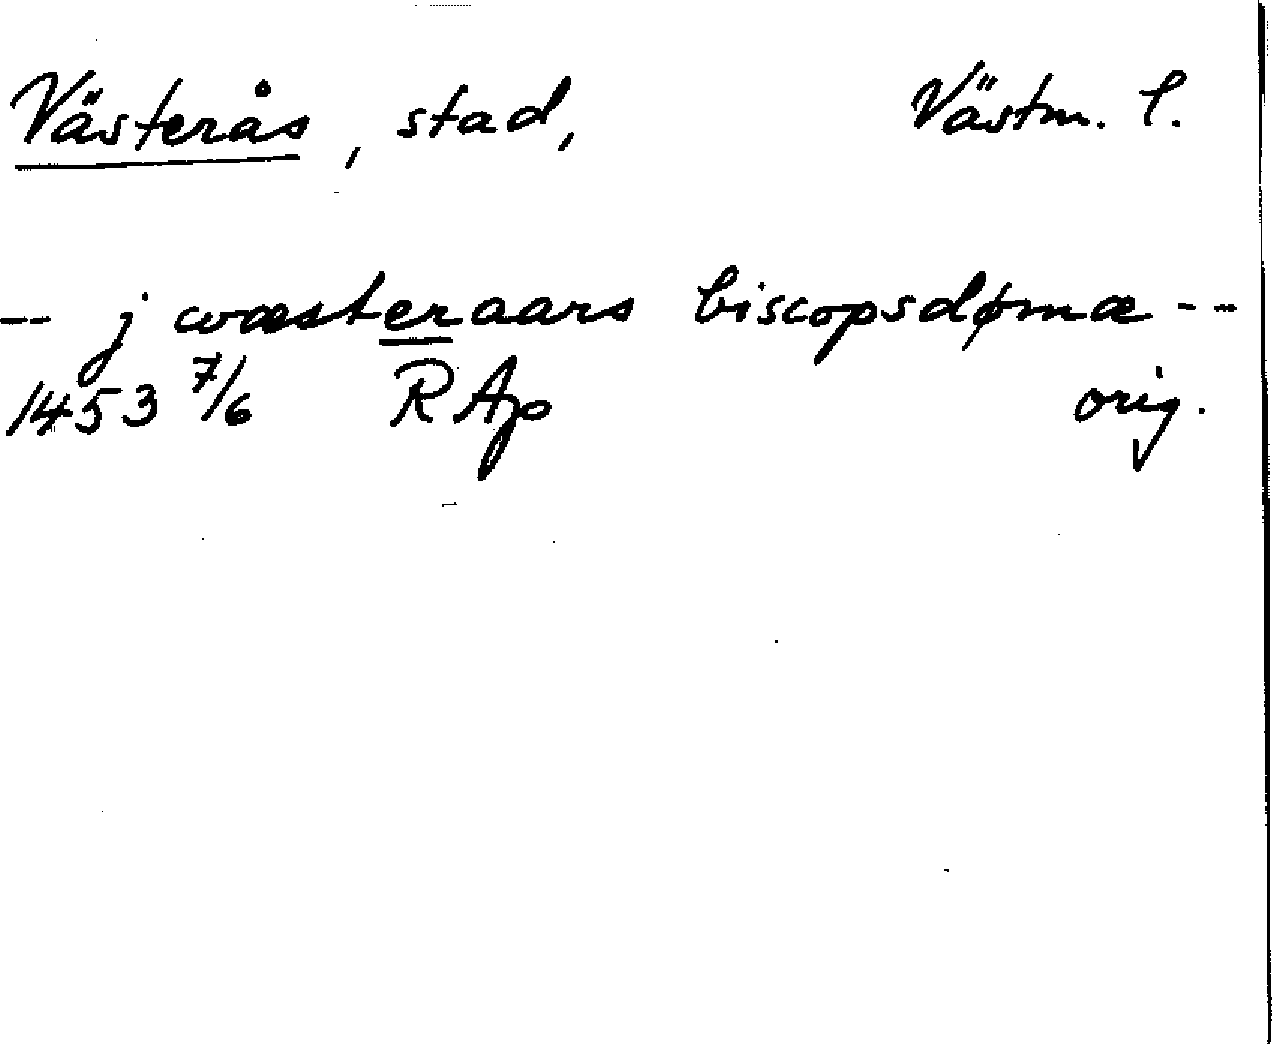 Västerås, stad, Västm. l.
-- j wæsteraars biscopsdømæ --
1453 7/6 RAp orig.